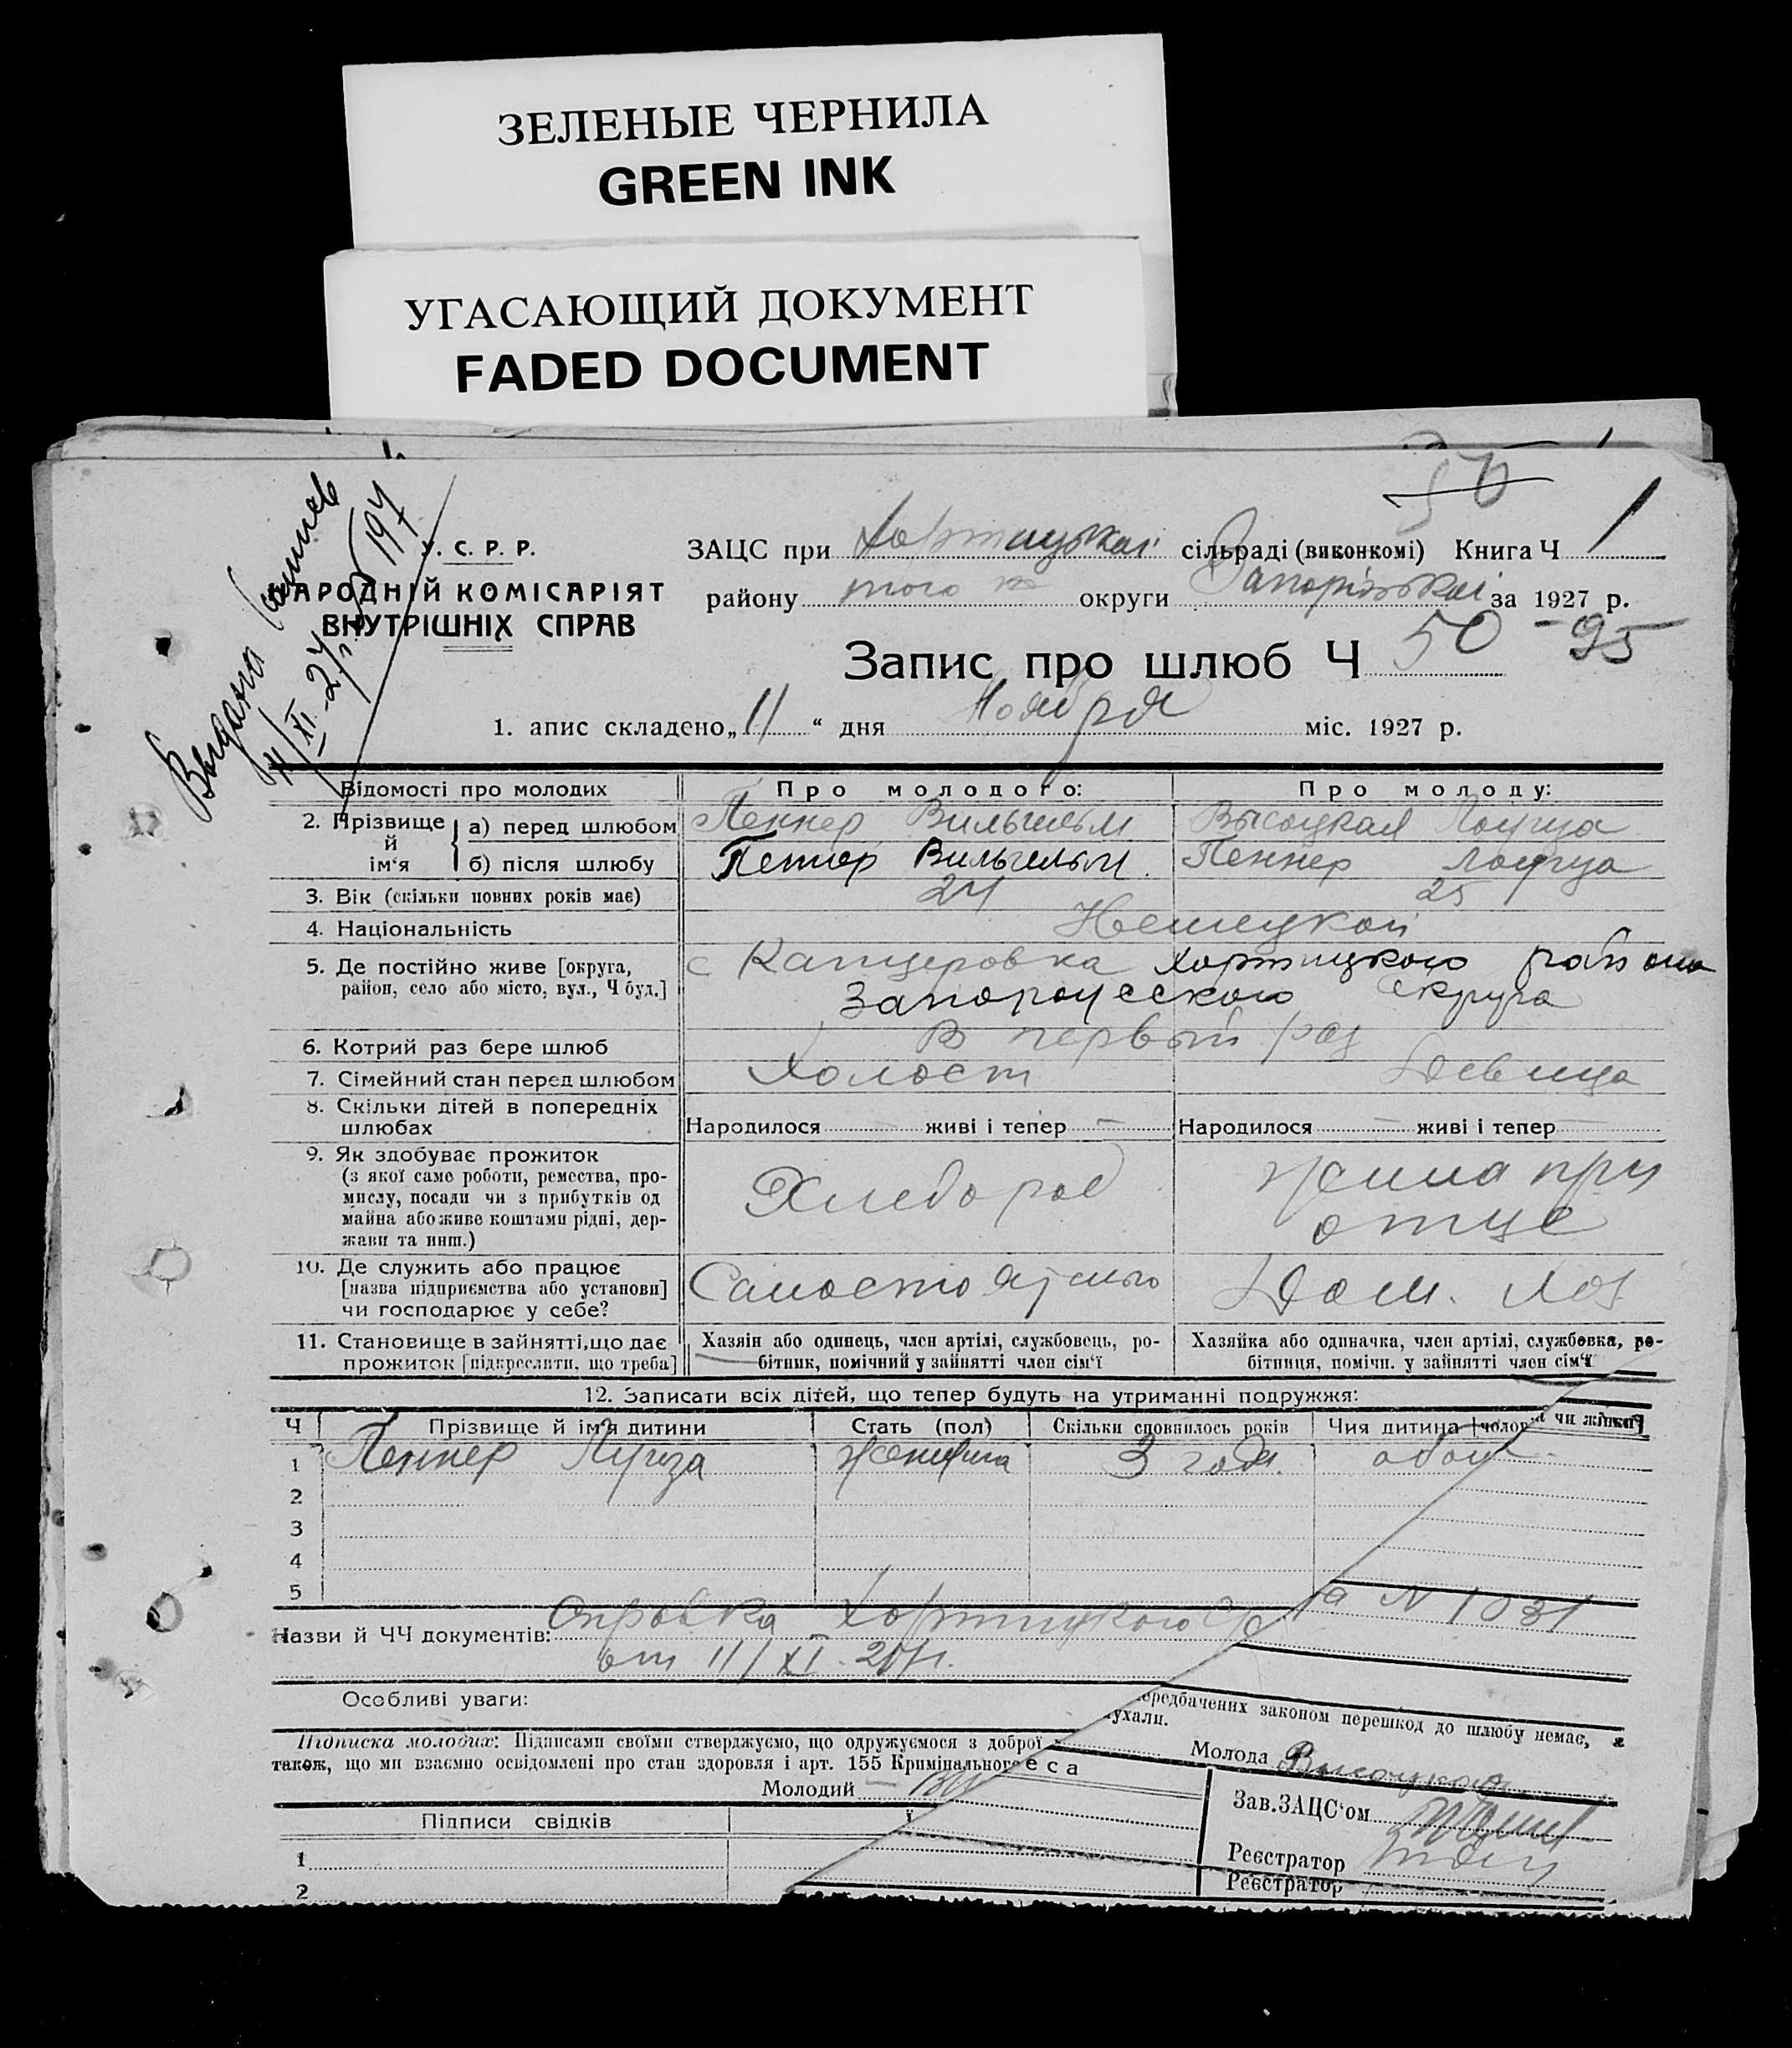 ЗЕЛЕНЫЕ ЧЕРНИЛА
GREEN INK
УГАСАЮЩИЙ ДОКУМЕНТ
FADED DOCUMENT
50
Выдано
11/XI-27 г. 197
С. Р. Р.
АРОДНІЙ КОМІСАРІЯТ
ВНУТРІШНІХ СПРАВ
ЗАЦС при Хортицькоі сільраді (виконкомі) Книга Ч 1
району того ж округи Запорізькоі за 1927 р.
Запис про шлюб Ч 50 - 95
1. апис складено „11“ дня Ноября міс. 1927 р.
Відомості про молодих Про молодого: Про молоду:
2. Прізвище й ім‘я а) перед шлюбом Пеннер Вильгельм Высоцкая Лоуиза
б) після шлюбу Пеннер Вильгельм. Пеннер Лоуиза
3. Вік (скільки повних років має) 24 25
4. Національність Немецкой
5. Де постійно живе [округа, с Канцеровка Хортицкого района
район, село або місто, вул., Ч буд.] Запорожского Округа
6. Котрий раз бере шлюб В первый раз
7. Сімейний стан перед шлюбом Холост Девица
8. Скільки дітей в попередніх
шлюбах Народилося — живі і тепер — Народилося — живі і тепер —
9. Як здобуває прожиток
(з якої саме роботи, ремества, про-
мислу, посади чи з прибутків од
майна або живе коштами рідні, дер-
жави та инш.)
Хлебороб Жила при
отце
10. Де служить або працює
[назва підприємства або установи]
чи господарює у себе?
Самостоятельно Дом. Хоз
11. Становище в зайнятті, що дає Хазяїн або одинець, член артілі, службовець, ро- Хазяйка або одиначка, член артілі, службовка, ро-
прожиток [підкреслити, що треба] бітник, помічний у зайнятті член сім‘ї бітниця, помічн. у зайнятті член сім‘ї
12. Записати всіх дітей, що тепер будуть на утриманні подружжя:
Ч Прізвище й ім‘я дитини Стать (пол) Скільки сповнилось років Чия дитина [чолов а чи жінки]
1 Пеннер Луиза женщина 3 года.
2
3
4
5
Назви й ЧЧ документів: Справка Хортицкого а N 1031
от 11/XI-27 г.
Особливі уваги:
Підписка молодих: Підписами своїми стверджуємо, що одружуємося з доброї ередбачених законом перешкод до шлюбу немає, а
також, що ми взаємно освідомлені про стан здоровля і арт. 155 Кримінального еса ухали.
Молодий Молода Высоцкая
Підписи свідків ї Зав.ЗАЦС‘ом
1 Реєстратор
2 Реєстратор